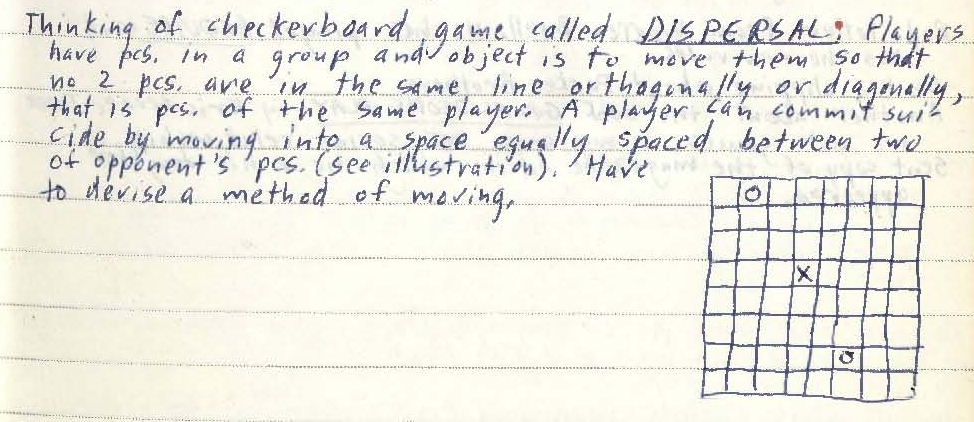 Thinking of checkerboard game called DISPERSAL: Players
have pcs. in a group and object is to move them so that
no 2 pcs. are in the same line orthagonally or diagonally,
that is pcs. of the same player. A player can commit sui-
cide by moving into a space equally spaced between two
of opponent's pcs. (see illustration). Have
to devise a method of moving.
O
X
O